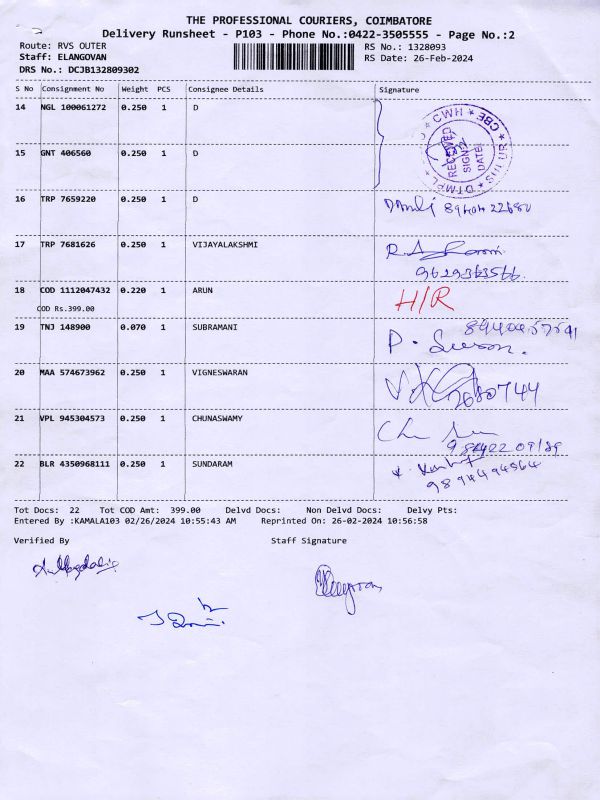 THE PROFESSIONAL COURIERS, COIMBATORE
Delivery Runsheet - P103 - Phone No.:0422-3505555 - Page No.:2
Route: RVS OUTER RS No.: 1328093
Staff: ELANGOVAN RS Date: 26-Feb-2024
DRS No.: DCJB132809302
S No Consignment No Weight PCS Consignee Details Signature
14 NGL 100061272 0.250 1 D
CWH CBE
RECEIVED
SIGN
DATE:
15 GNT 406560 0.250 1 D
16 TRP 7659220 0.250 1 D
17 TRP 7681626 0.250 1 VIJAYALAKSHMI
18 COD 1112047432 0.220 1 ARUN H/R
COD Rs.399.00
19 TNJ 148900 0.070 1 SUBRAMANI
20 MAA 574673962 0.250 1 VIGNESWARAN
2680744
21 VPL 945304573 0.250 1 CHUNASWAMY
22 BLR 4350968111 0.250 1 SUNDARAM
9894494564
Tot Docs: 22 Tot COD Amt: 399.00 Delvd Docs: Non Delvd Docs: Delvy Pts:
Entered By :KAMALA103 02/26/2024 10:55:43 AM Reprinted On: 26-02-2024 10:56:58
Verified By Staff Signature